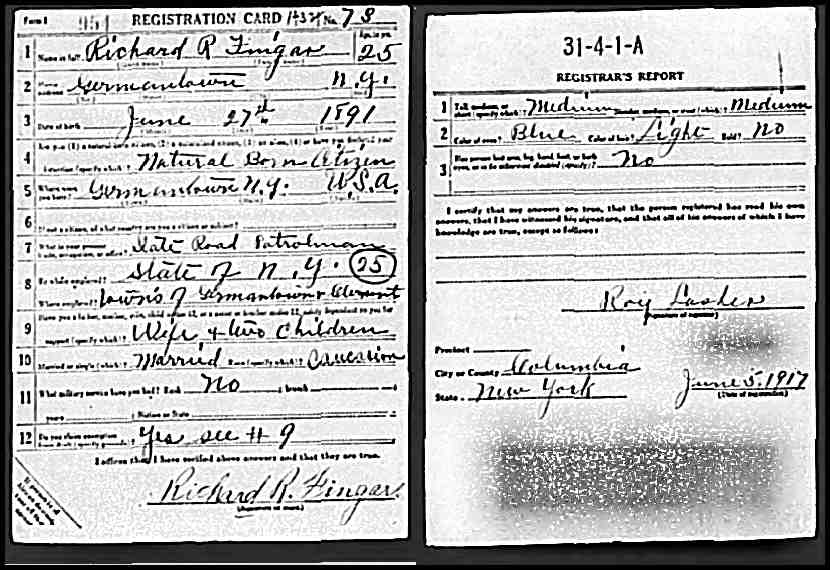 Form 1 REGISTRATION CARD No. 73
1 Name in full Richard R Fingar Age, in yrs. 25
2 Home address Germantown N.Y.
3 Date of birth June 27th 1891
4 Are you (1) a natural born citizen, (2) a naturalized citizen, (3) an alien, (4) or have you declared your intention (specify which)? Natural Born Citizen
5 Where were you born? Germantown N.Y. U.S.A.
6 If not a citizen, of what country are you a citizen or subject?
7 What is your present trade, occupation, or office? State Road Patrolman
8 By whom employed? State of N.Y. 25
Where employed? Towns of Germantown & Clermont
9 Have you a father, mother, wife, child under 12, or a sister or brother under 12, solely dependent on you for
support (specify which)? Wife & two Children
10 Married or single (which)? Married Race (specify which)? Caucasion
11 What military service have you had? Rank No branch
years Nation or State
12 Do you claim exemption from draft (specify grounds)? Yes see # 9
I affirm that I have verified above answers and that they are true.
Richard R. Fingar.
(Signature or mark)
31-4-1-A
REGISTRAR'S REPORT
1 Tall, medium, or short (specify which)? Medium Slender, medium, or stout (which)? Medium
2 Color of eyes? Blue Color of hair? Light Bald? No
3 Has person lost arm, leg, hand, foot, or both eyes, or is he otherwise disabled (specify)? No
I certify that my answers are true, that the person registered has read his own
answers, that I have witnessed his signature, and that all of his answers of which I have
knowledge are true, except as follows:
Roy Lasher
(Signature of registrar)
Precinct
City or County Columbia
State New York June 5. 1917
(Date of registration)